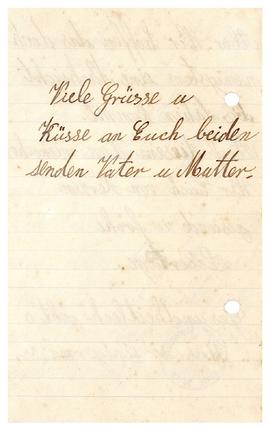 Viele Grüsse u
Küsse an Euch beiden
senden Vater u Mutter.